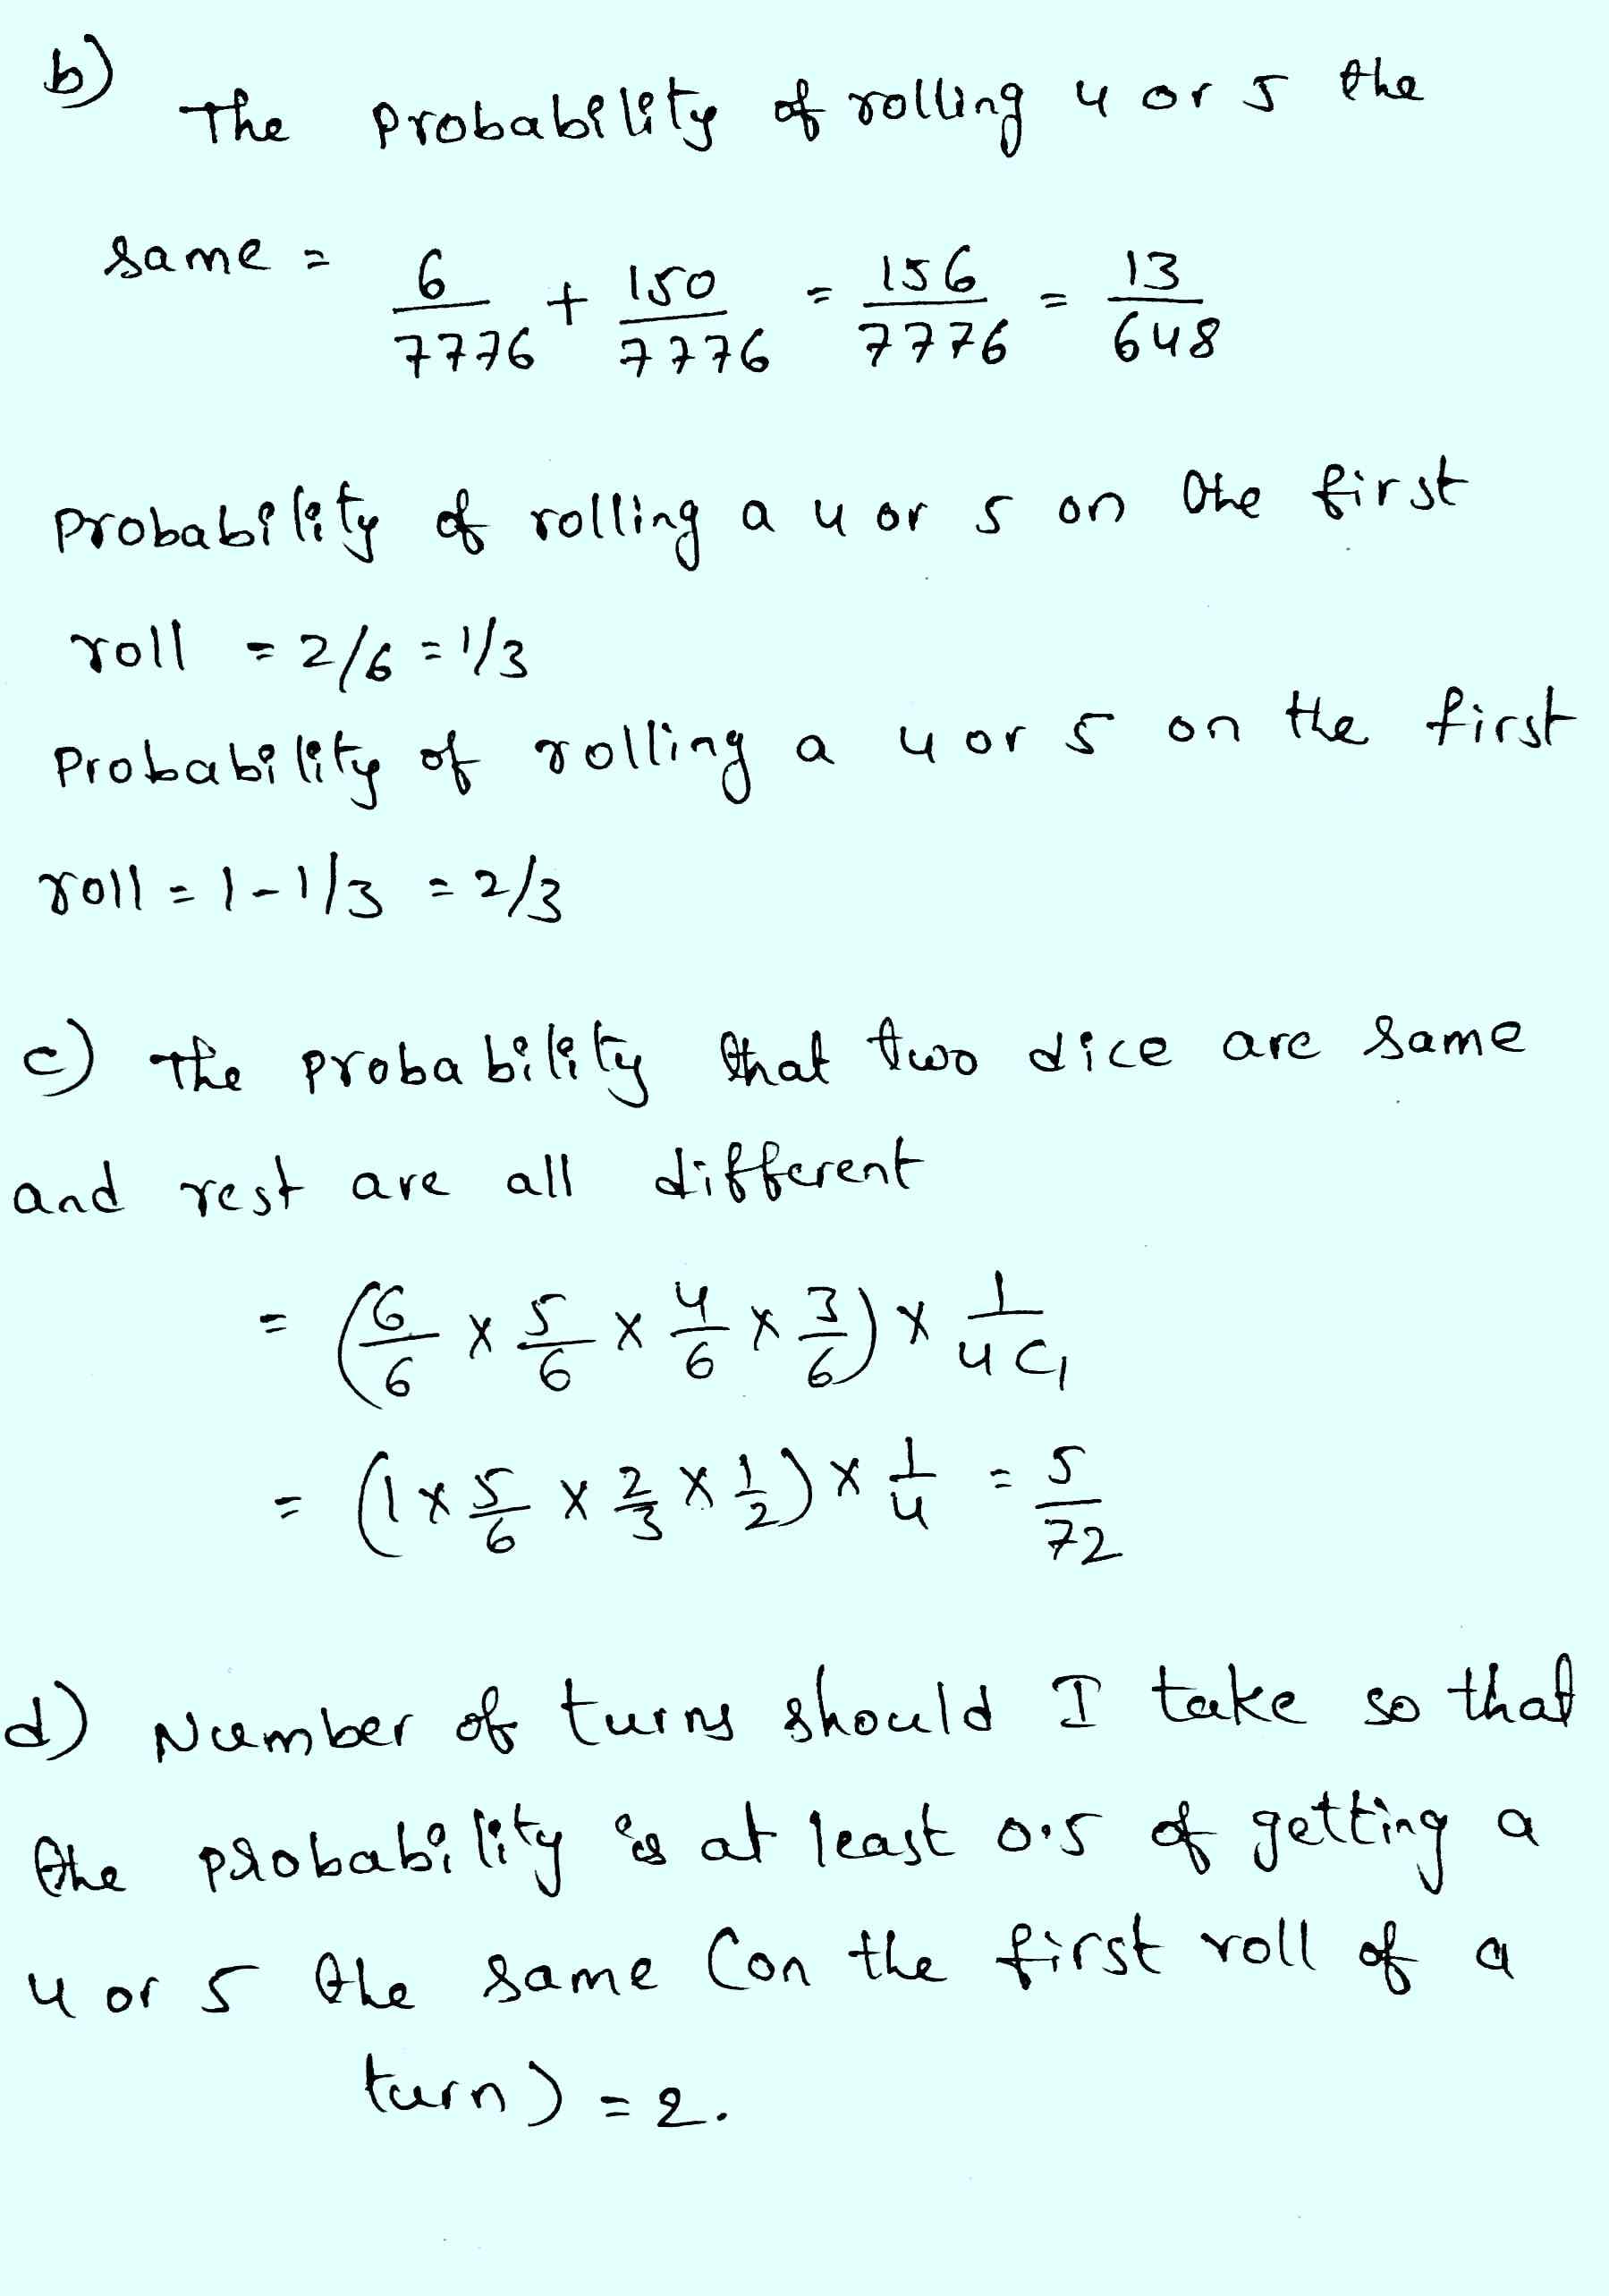 b)
The probability of rolling 4 or 5 the
same = 6/7776 + 150/7776 = 156/7776 = 13/648
probability of rolling a 4 or 5 on the first
roll = 2/6 = 1/3
Probability of rolling a 4 or 5 on the first
roll = 1 - 1/3 = 2/3
c) The probability that two dice are same
and rest are all different
= (6/6 × 5/6 × 4/6 × 3/6) × 1/4C1
= (1 × 5/6 × 2/3 × 1/2) × 1/4 = 5/72
d) Number of turns should I take so that
the probability is at least 0.5 of getting a
4 or 5 the same (on the first roll of a
turn) = 2.